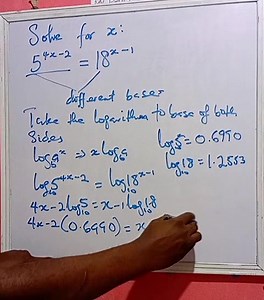 Solve for x:
5^{4x-2} = 18^{x-1}
different bases
Take the logarithm to base of both
sides
log_{10} a^x ⇒ x log_{10} a
log_{10} 5 = 0.6990
log_{10} 18 = 1.2553
log_{10} 5^{4x-2} = log_{10} 18^{x-1}
4x-2 log_{10} 5 = x-1 log_{10} 18
4x-2(0.6990) = x